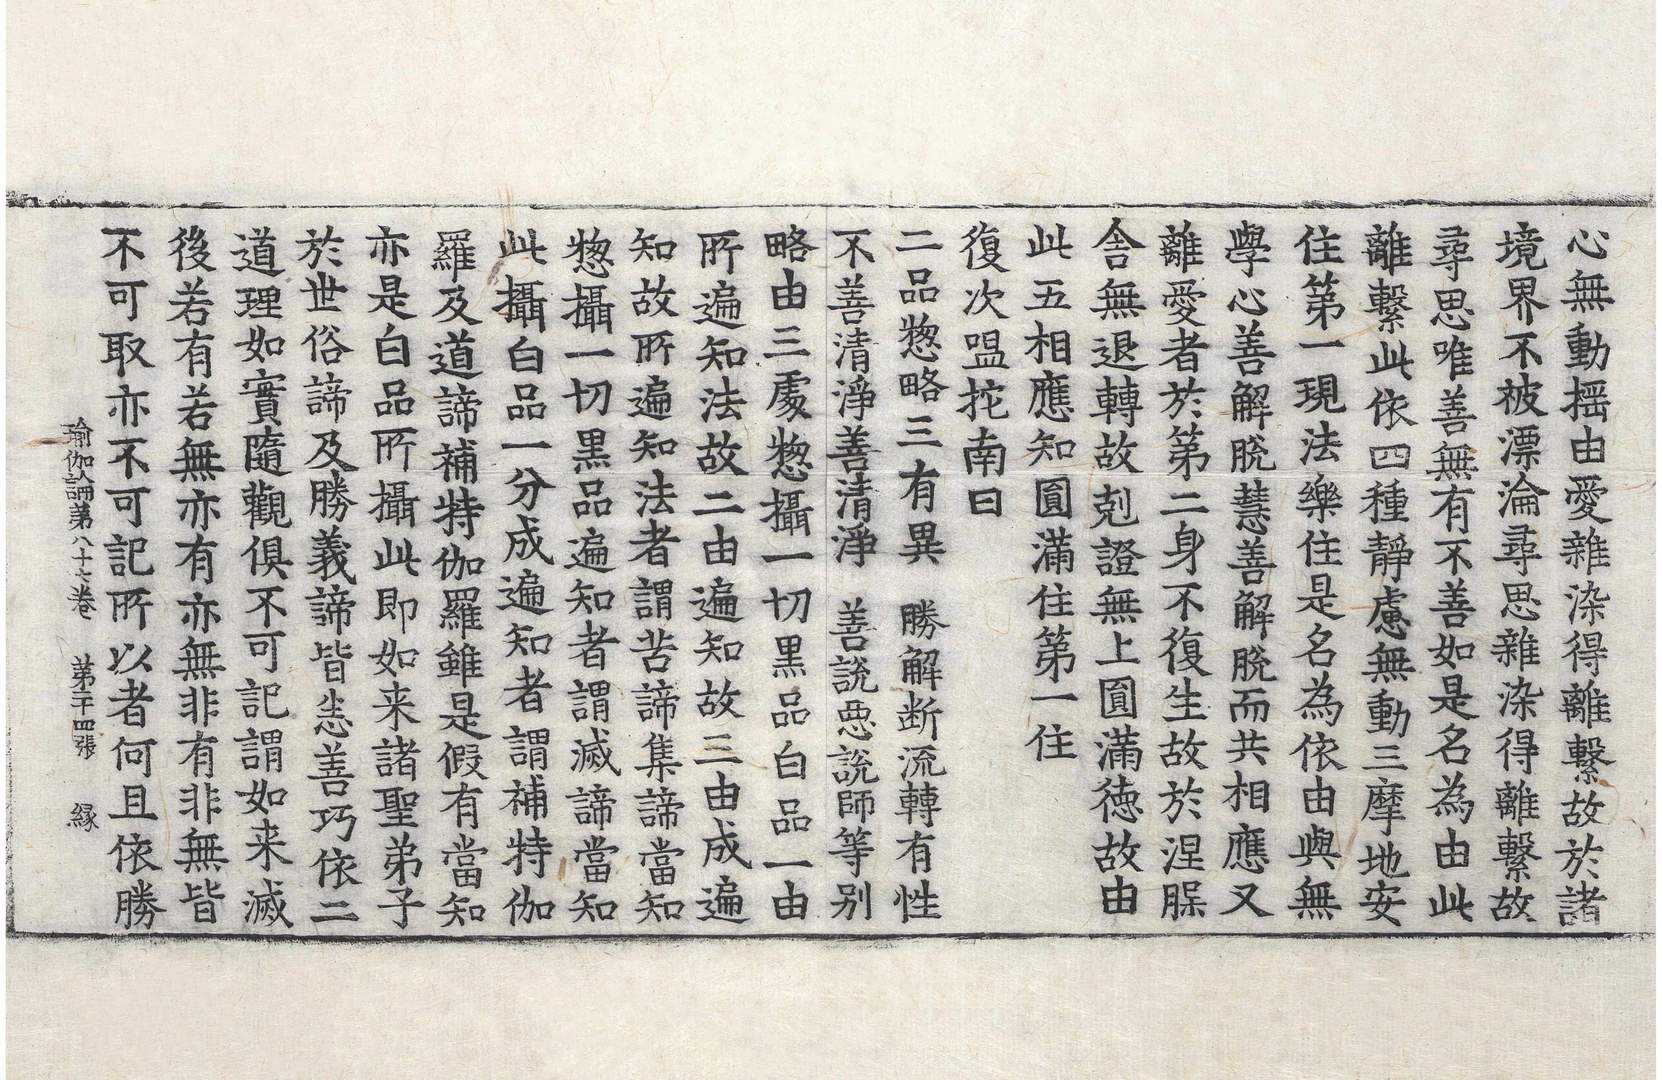 心無動揺由愛雜染得離繫故於諸
境界不被漂淪尋思雜染得離繫故
尋思唯善無有不善如是名為由此
離繫此依四種靜慮無動三摩地安
住第一現法樂住是名為依由與無
學心善解脫慧善解脫而共相應又
離愛者於第二身不復生故於涅槃
舍無退轉故剋證無上圓滿德故由
此五相應知圓滿住第一住
復次嗢拕南曰
二品惣略三有異　勝解断流轉有性
不善清淨善清淨　善說惡說師等別
略由三處惣攝一切黒品白品一由
所遍知法故二由遍知故三由成遍
知故所遍知法者謂苦諦集諦當知
惣攝一切黒品遍知者謂滅諦當知
此攝白品一分成遍知者謂補特伽
羅及道諦補特伽羅雖是假有當知
亦是白品所攝此即如来諸聖弟子
於世俗諦及勝義諦皆悉善巧依二
道理如實隨觀俱不可記謂如来滅
後若有若無亦有亦無非有非無皆
不可取亦不可記所以者何且依勝
瑜伽論第八十七卷　第二十四張　緣